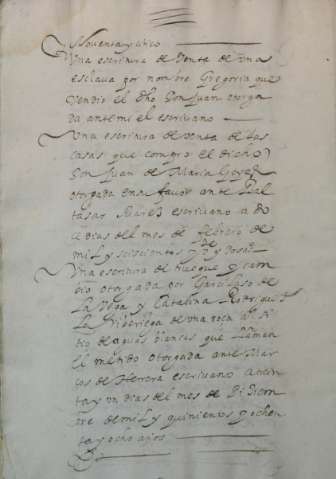 Noventa y cinco
Una escritura de venta de una
esclava por nombre Gregoria que
vendio el dho Don Juan otorga
da ante mi el escrivano
Una escritura de venta de las
casas que compro el dicho
Don Juan de Maria
otorgada en su favor ante Bal
tasar escrivano a do
ce dias del mes de febrero de
mil y seiscientos y
Una escritura de trueque y cam
bio otorgada por Garcilaso de
La Vega y Catalina Rodrigues
La de una por el si
tio de aguas blancas que llaman
el metido otorgada ante Mar
cos de Herrera escrivano a trein
ta y un dias del mes de Diziem
bre de mil y quinientos y ochen
ta y ocho años